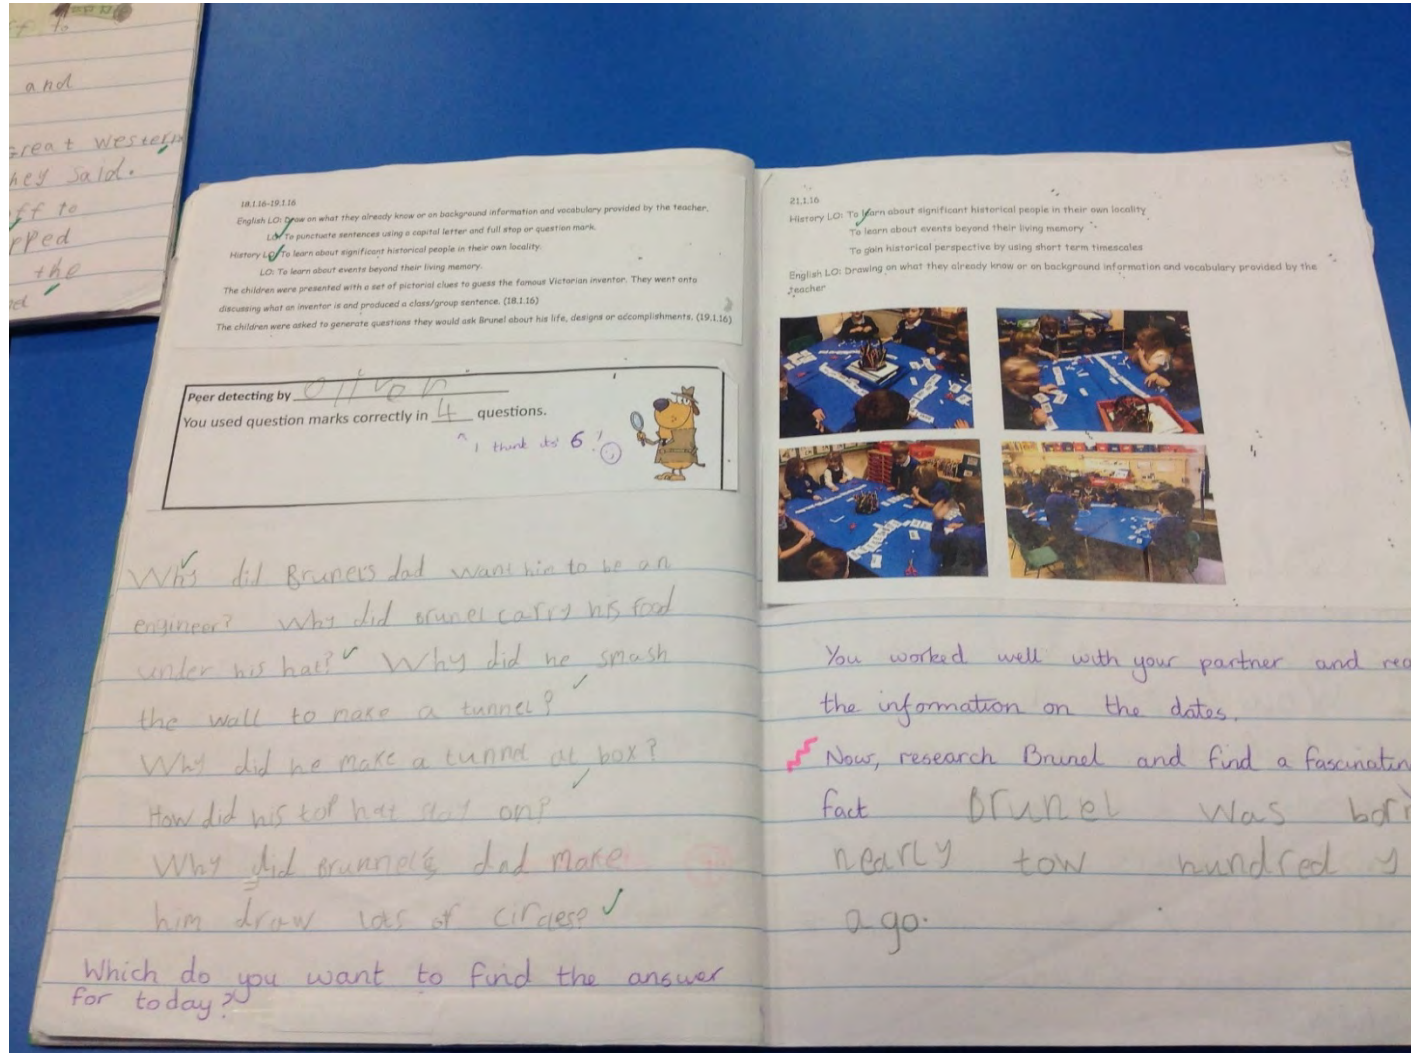 and
Great Western
they said.
off to
the
18.1.16-19.1.16
English LO: Draw on what they already know or on background information and vocabulary provided by the teacher.
LO: To punctuate sentences using a capital letter and full stop or question mark.
History LO: To learn about significant historical people in their own locality.
LO: To learn about events beyond their living memory.
The children were presented with a set of pictorial clues to guess the famous Victorian inventor. They went onto
discussing what an inventor is and produced a class/group sentence. (18.1.16)
The children were asked to generate questions they would ask Brunel about his life, designs or accomplishments. (19.1.16)
Peer detecting by oliver
You used question marks correctly in 4 questions.
^ I think its 6!
Why did Brunel's dad want him to be an
engineer? Why did Brunel carry his food
under his hat? Why did he smash
the wall to make a tunnel?
Why did he make a tunnel at box?
How did his top hat stay on?
Why did Brunnel's dad make
him draw lots of circles?
Which do you want to find the answer
for today?
21.1.16
History LO: To learn about significant historical people in their own locality
To learn about events beyond their living memory
To gain historical perspective by using short term timescales
English LO: Drawing on what they already know or on background information and vocabulary provided by the
teacher
You worked well with your partner and rea
the information on the dates.
Now, research Brunel and find a fascinatin
fact Brunel was bor
nearly tow hundred y
ago.